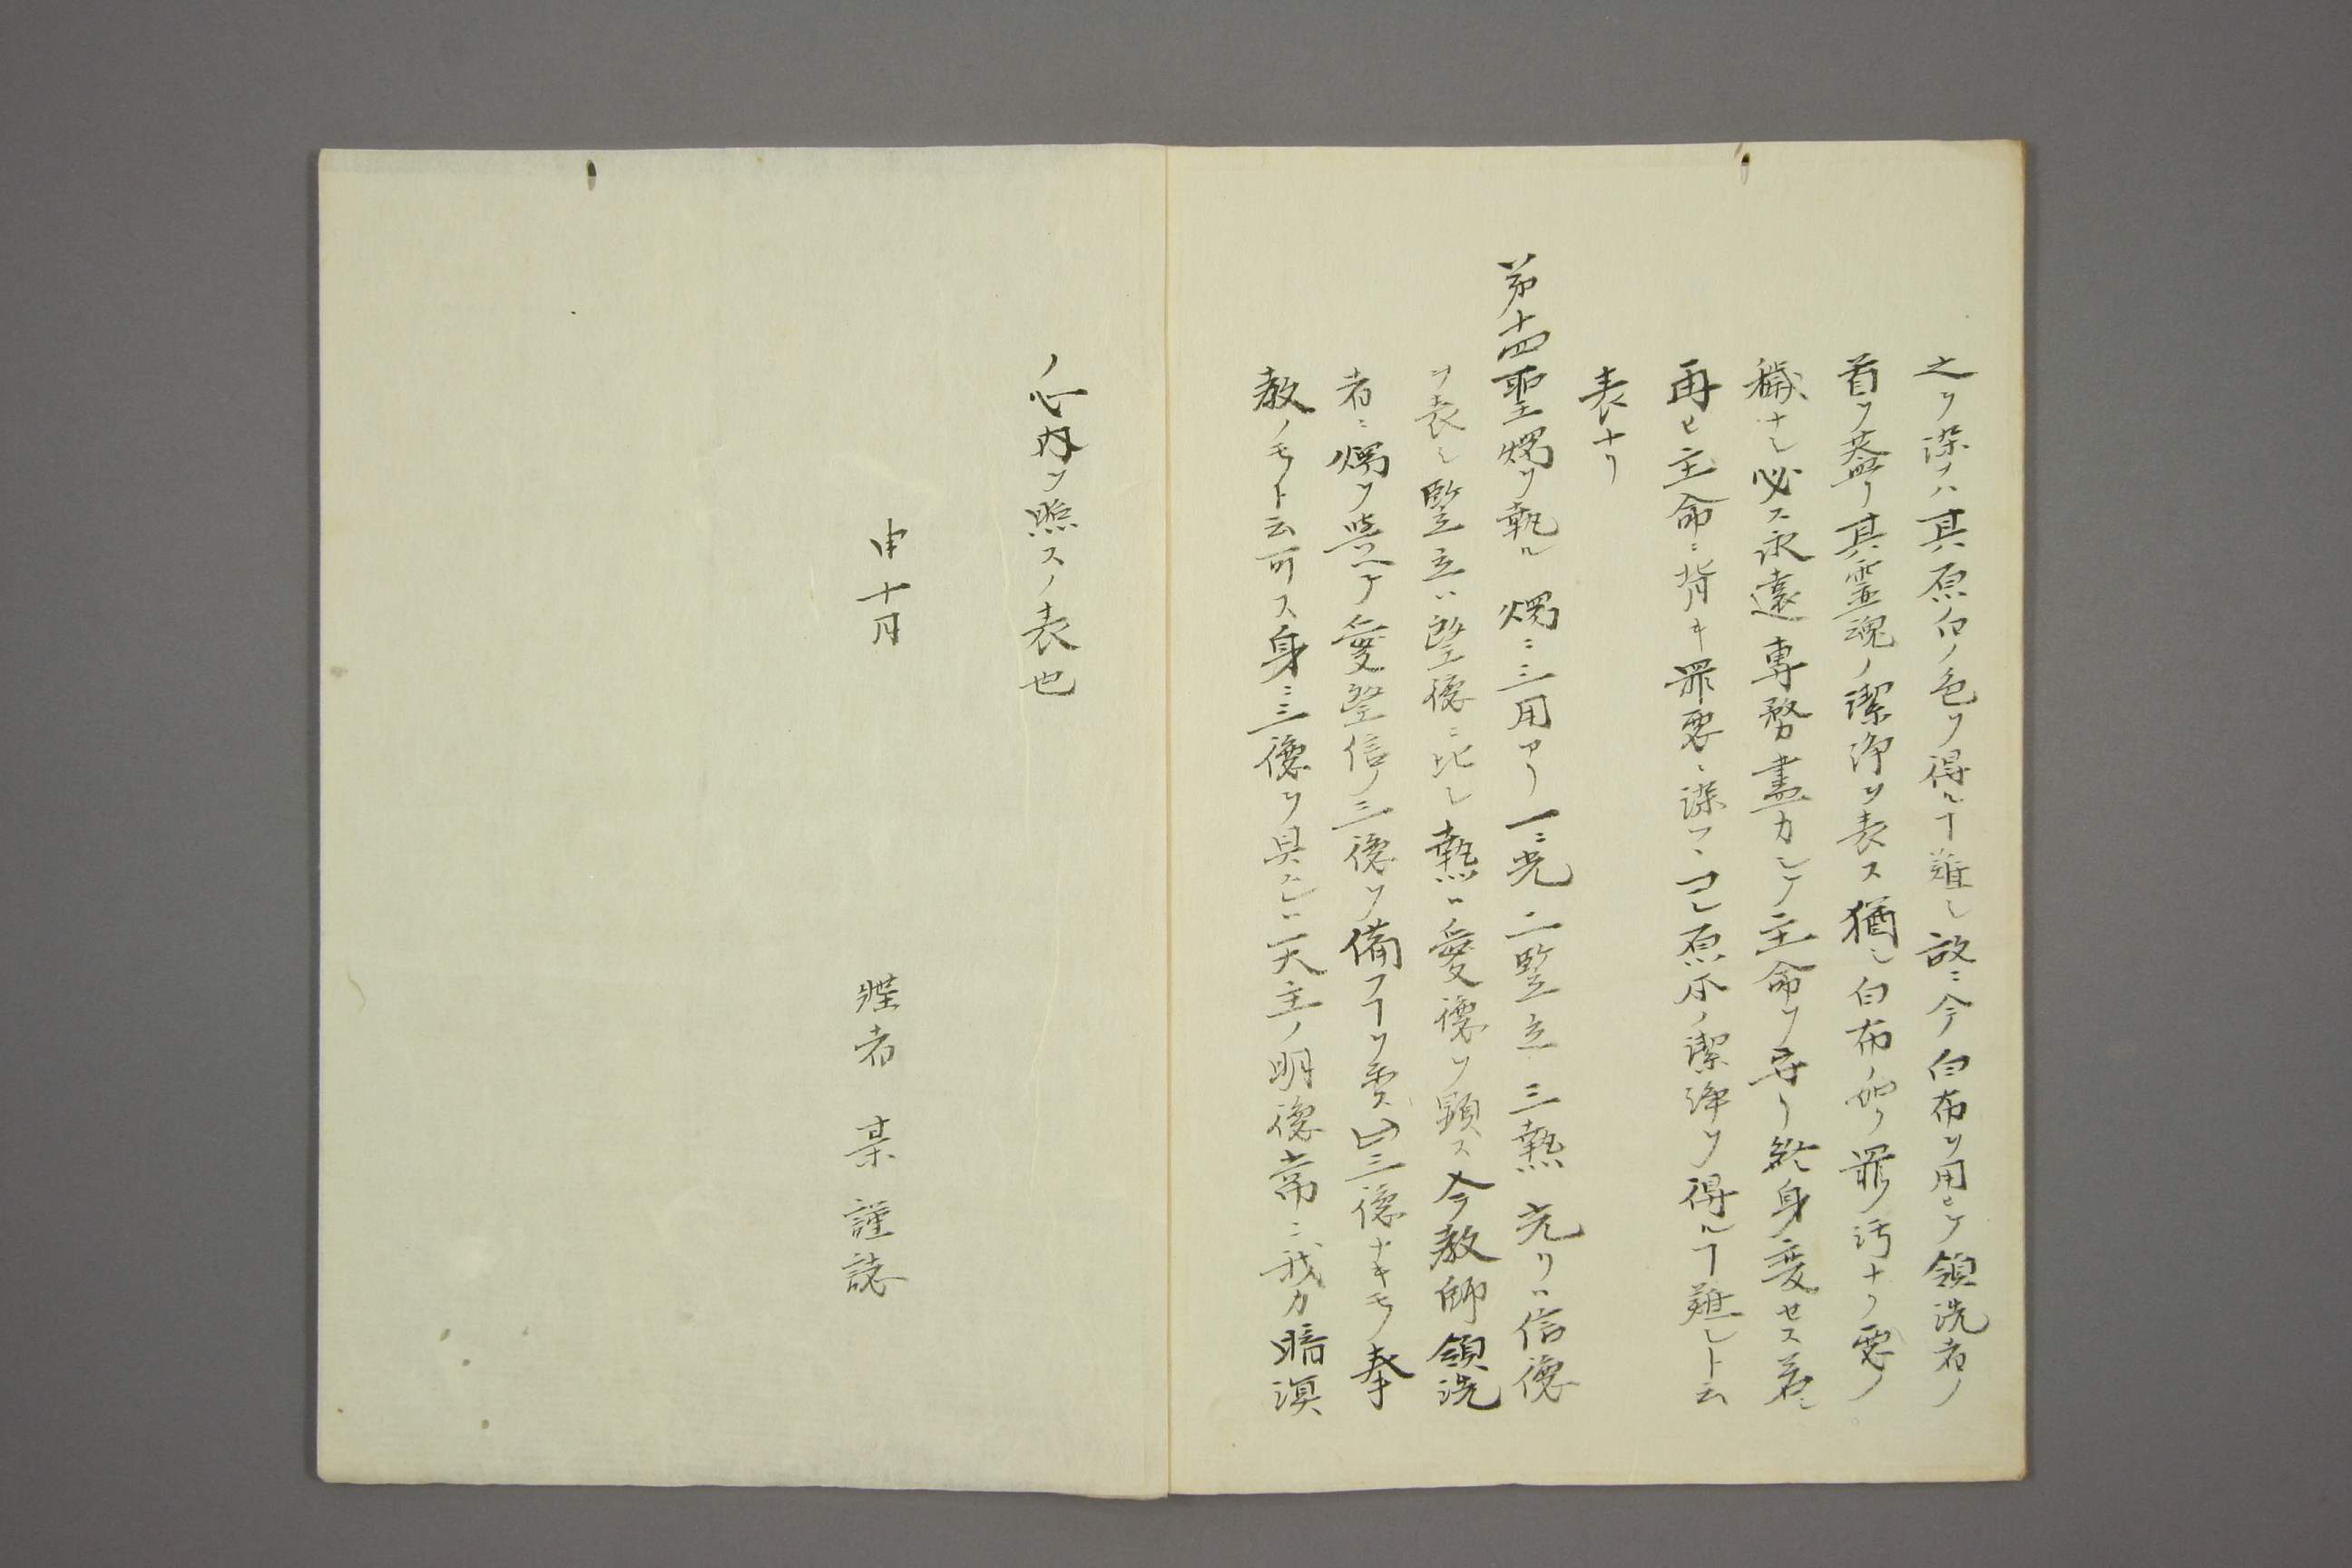 之ヲ染ハ其原白ノ色ヲ得ルヿ難シ故ニ今白布ヲ用ヒテ領洗者ノ
首ヲ葢ヒ其霊魂ノ潔浄ヲ表ス猶シ白布ノ如ク罪ノ汚ナク悪ノ
穢ナシ必ス永遠専務盡力シテ主命ヲ守リ終身変セス若シ
再ヒ主命ニ背キ罪悪ニ染マハマコト原本ノ潔浄ヲ得ルヿ難シト云
表ナリ
第十四聖燭ヲ執ル 燭ニ三用アリ 一ニ光 二竪立 三熱 光リハ信徳
ヲ表シ竪立ハ望徳ニ比シ熱ハ愛徳ヲ顕ス今教師領洗
者ニ燭ヲ与ヘテ愛望信ノ三徳ヲ備フヿヲ要ス此三徳ナキモノ奉
教ノモノト云可ス身ニ三徳ヲ具スレハ天主ノ明徳常ニ我カ暗溟
ノ心内ヲ照スノ表也
申十月
者 某 謹誌